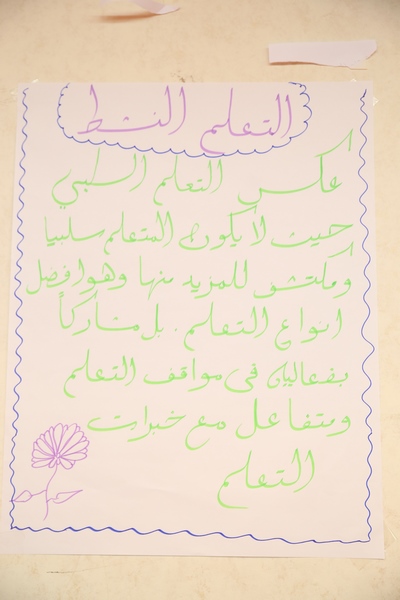 التعلم النشط
عكس التعلم السلبي
حيث لا يكون المتعلم سلبيا
ومكتشف للمزيد منها وهو افضل
انواع التعلم. بل مشاركاً
بفعالية في مواقف التعلم
ومتفاعل مع خبرات
التعلم